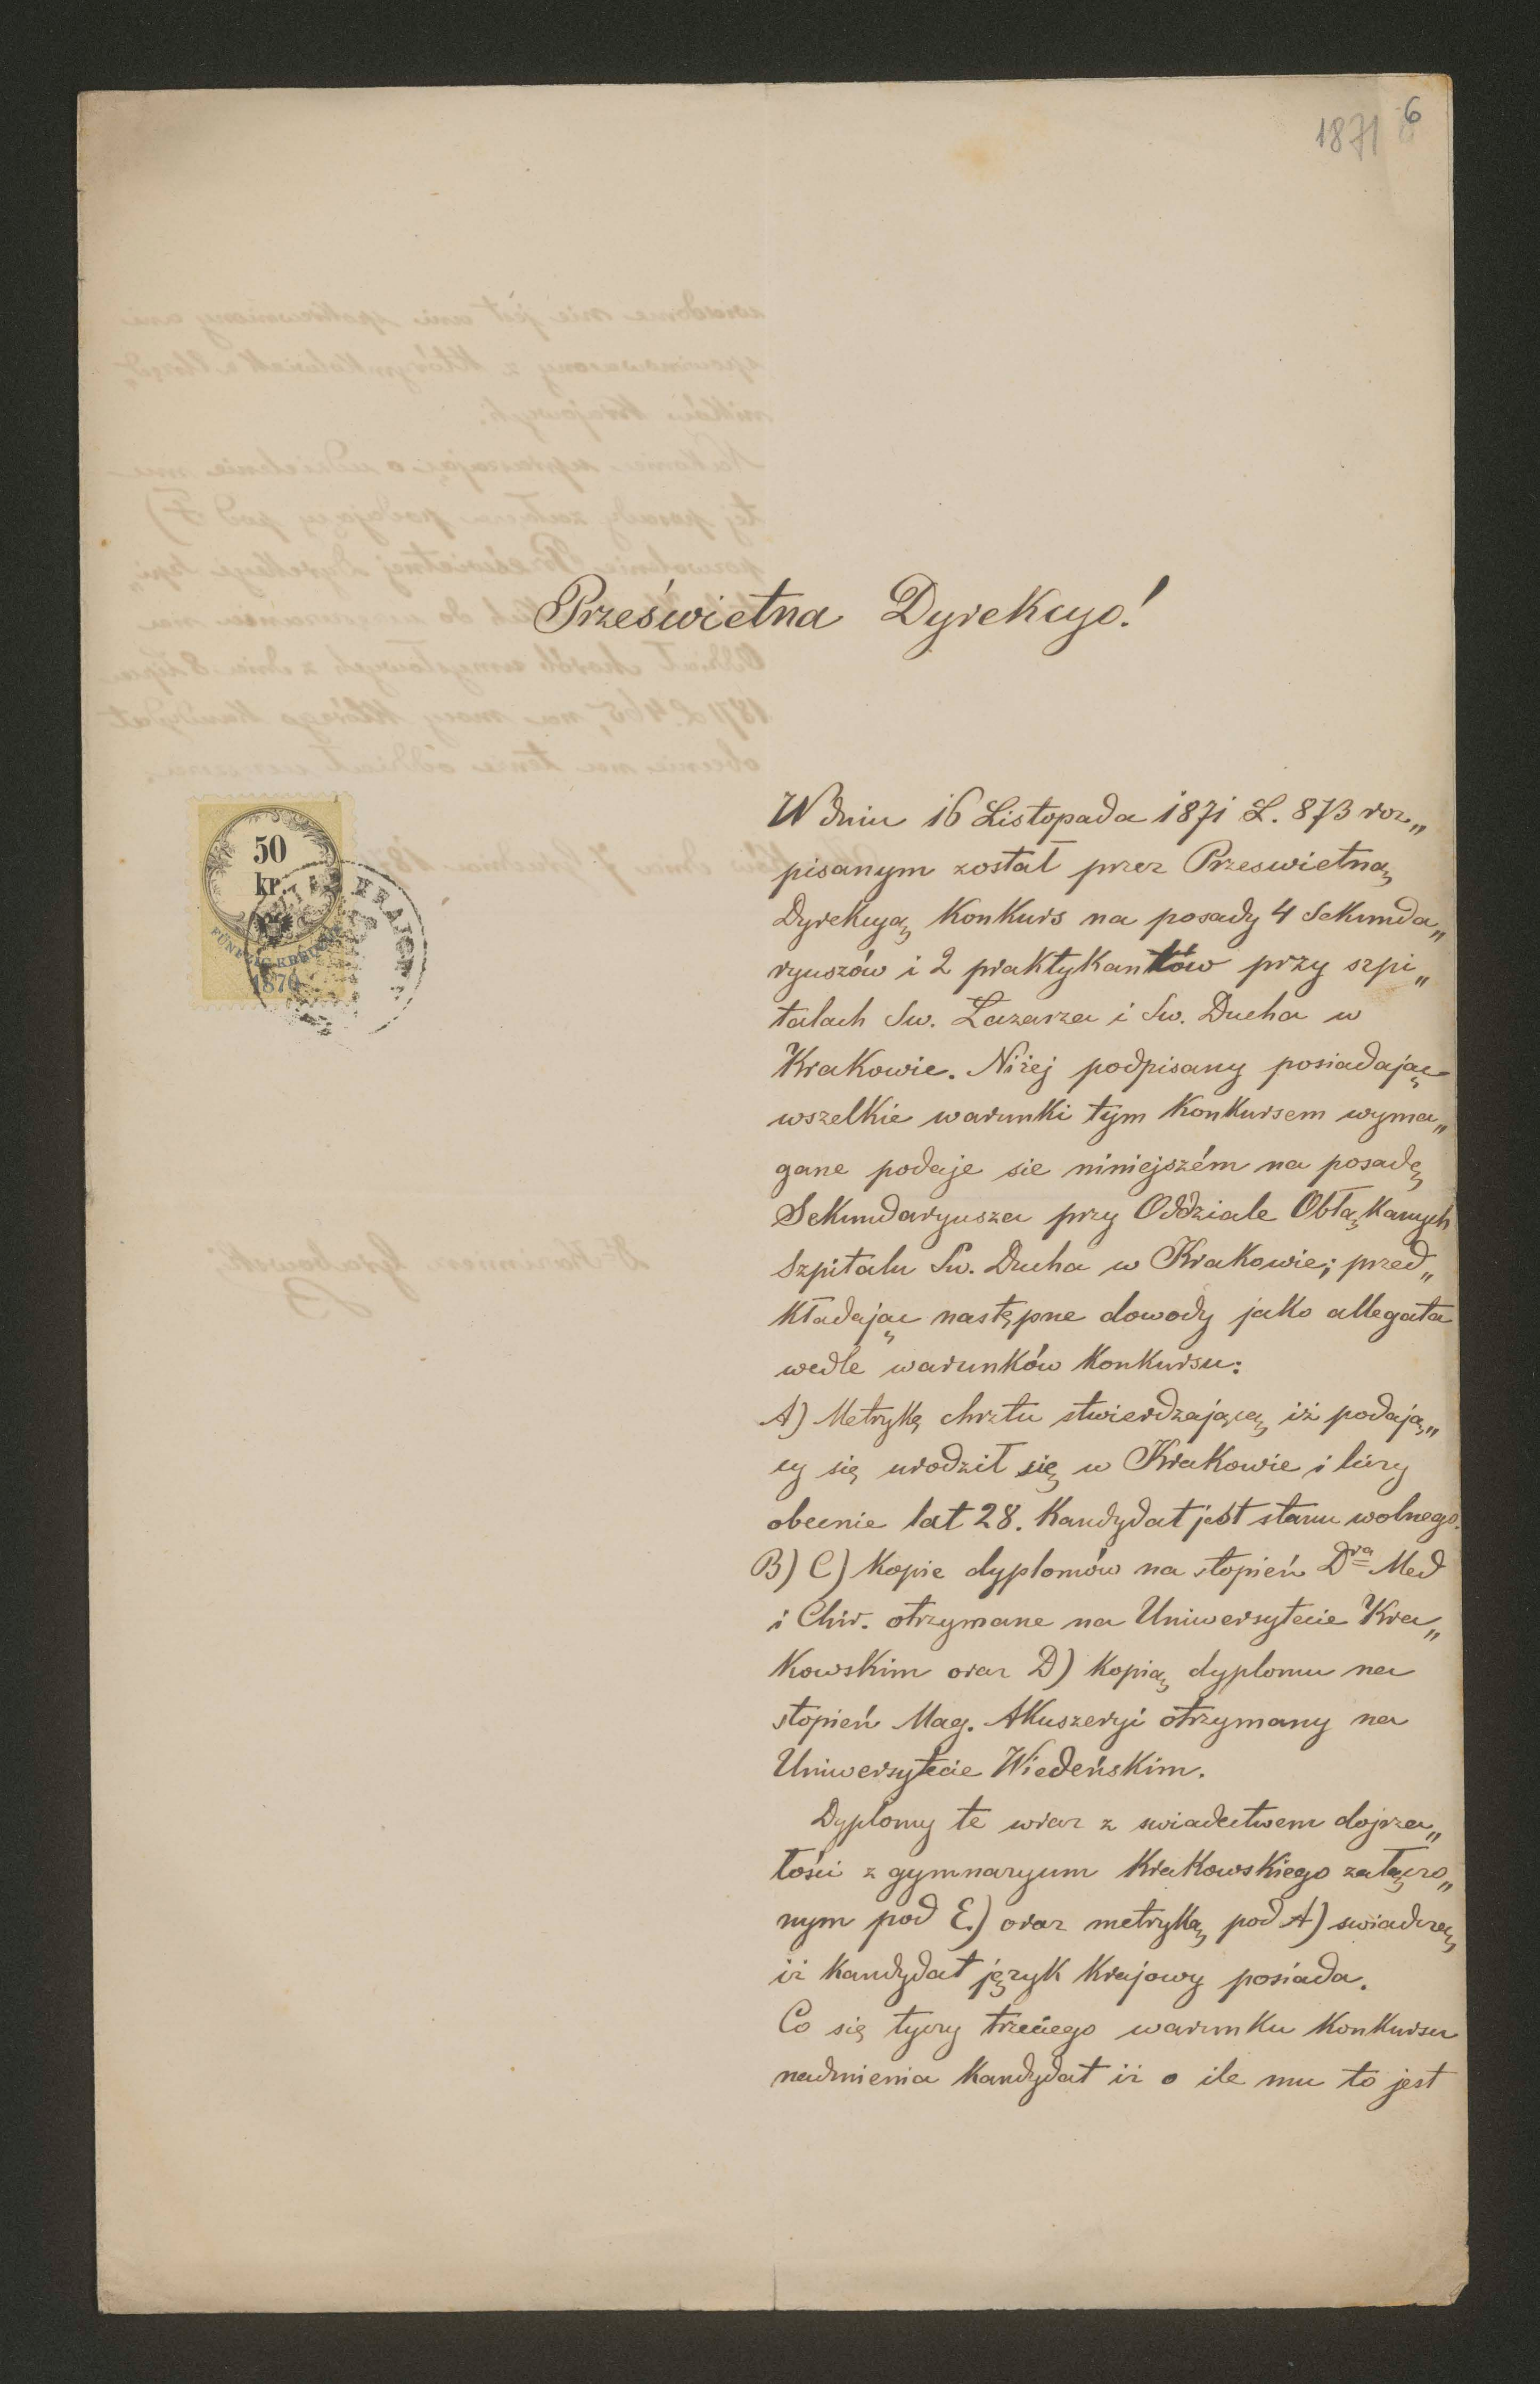 1871 6
Prześwietna Dyrekcyo!
50
kr.
FÜNFZIG KREUZER
1870
KRAJOW
W dniu 16 Listopada 1871 L. 873 roz„
pisanym został przez Przeswietną
Dyrekcyą Konkurs na posady 4 Sekunda„
ryuszów i 2 praktykantów przy szpi„
talach Sw. Lazarza i Sw. Ducha w
Krakowie. Niżej podpisany posiadając
wszelkie warunki tym Konkursem wyma„
gane podaje sie niniejszém na posadę
Sekundaryusza przy Oddziale Obłąkanych
Szpitalu Sw. Ducha w Krakowie; przed„
kładając następne dowody jako allegata
wedle warunków Konkursu:
A) Metrykę chrztu stwierdzającą iż podają„
cy się urodził się w Krakowie i liczy
obecnie lat 28. Kandydat jest stanu wolnego.
B) C) Kopie dyplomów na stopień Dra Med
i Chir. otrzymane na Uniwersytecie Kra„
kowskim oraz D) Kopią dyplomu na
stopień Mag. Akuszeryi otrzymany na
Uniwersytecie Wiedeńskim.
Dyplomy te wraz z swiadectwem dojrza„
łości z gymnazyum Krakowskiego załączo„
nym pod E.) oraz metryką pod A) swiadczą
iż Kandydat język Krajowy posiada.
Co się tyczy trzeciego warunku Konkursu
nadmienia Kandydat iż o ile mu to jest